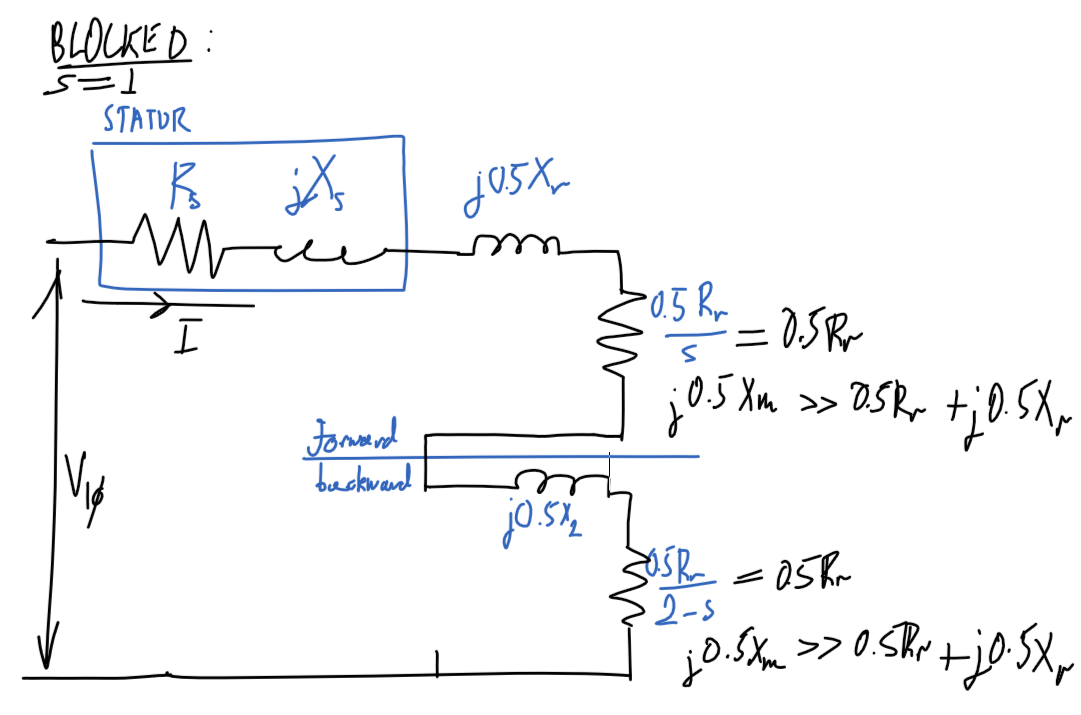 BLOCKED :
s=1
STATOR
Rs
jXs
j0.5Xr
I
0.5 Rr
s
= 0.5Rr
j0.5Xm >> 0.5Rr + j0.5Xr
forward
backward
V1φ
j0.5X2
0.5Rr
2-s
= 0.5Rr
j0.5Xm >> 0.5Rr + j0.5Xr